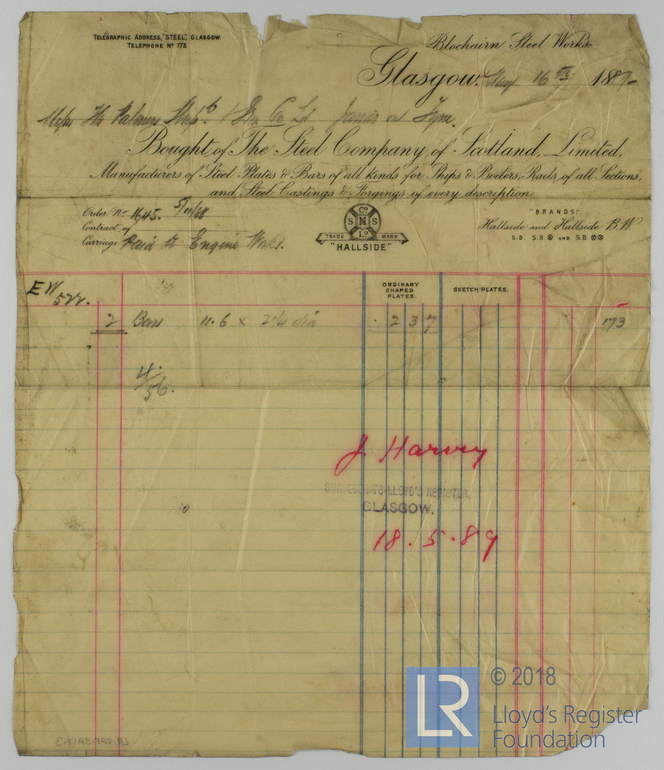 TELEGRAPHIC ADDRESS, "STEEL", GLASGOW.
TELEPHONE Nº 773.
Blochairn Steel Works
Glasgow, May 16th 1889
Messrs The Palmers Ship & Co Ld Jarrow on Tyne.
Bought of The Steel Company of Scotland, Limited,
Manufacturers of Steel Plates & Bars of all kinds for Ships & Boilers, Rails, of all Sections,
and Steel Castings & Forgings of every description.
Order No 1645. 5/11/88
Contract of
Carriage Paid to Engine Works.
Co
S N S
Ld
TRADE MARK
"HALLSIDE"
"BRANDS"
Hallside and Hallside B.W
S.B. S.B AND S.B
ORDINARY SHAPED PLATES.
SKETCH PLATES.
EW 522.
2 Bars 11.6 × 2 1/2 dia 2 3 7 173
56.
J Harvey
SURVEYOR TO LLOYD'S REGISTER,
GLASGOW.
18.5.89
LR
© 2018
Lloyd's Register
Foundation